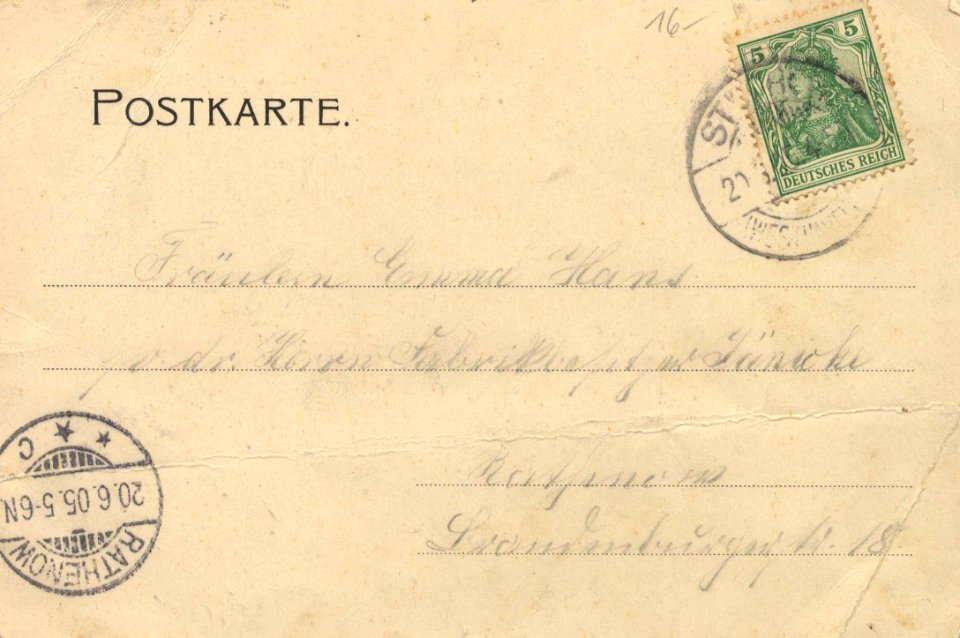 16-
POSTKARTE.
5 5
DEUTSCHES REICH
ST
20
(WES
Fräulein Emma Hans
dr. Herrn Fabrikbesitzer Jänicke
Rathenow
Brandenburger str. 18.
C
20.6.05.5-6N
RATHENOW